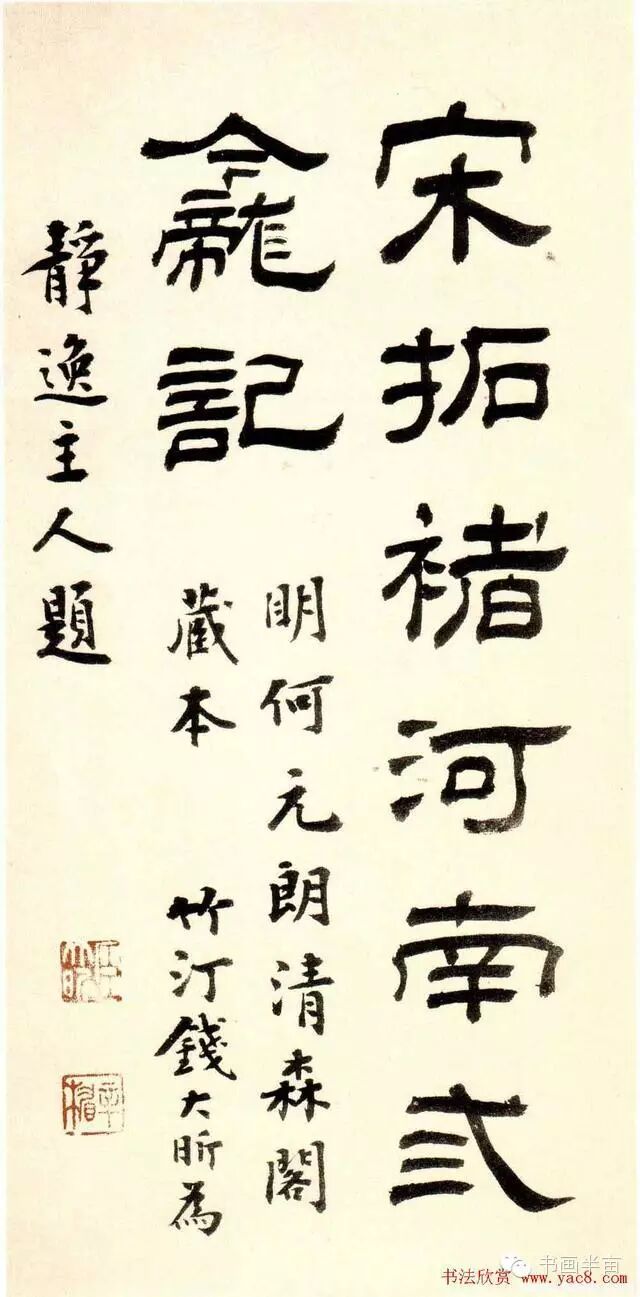 宋拓褚河南弎
龕記
明何元朗清森閣
藏本 竹汀錢大昕為
靜逸主人題
辛楣
书画半亩
书法欣赏 www.yac8.com